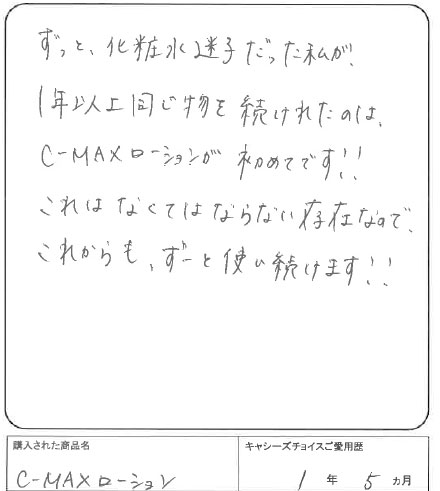 ずっと、化粧水迷子だった私が、
1年以上同じ物を続けれたのは、
C-MAXローションが初めてです!!
これはなくてはならない存在なので、
これからも、ずーと使い続けます!!
購入された商品名
C-MAXローション
キャシーズチョイスご愛用歴
1年5ヵ月